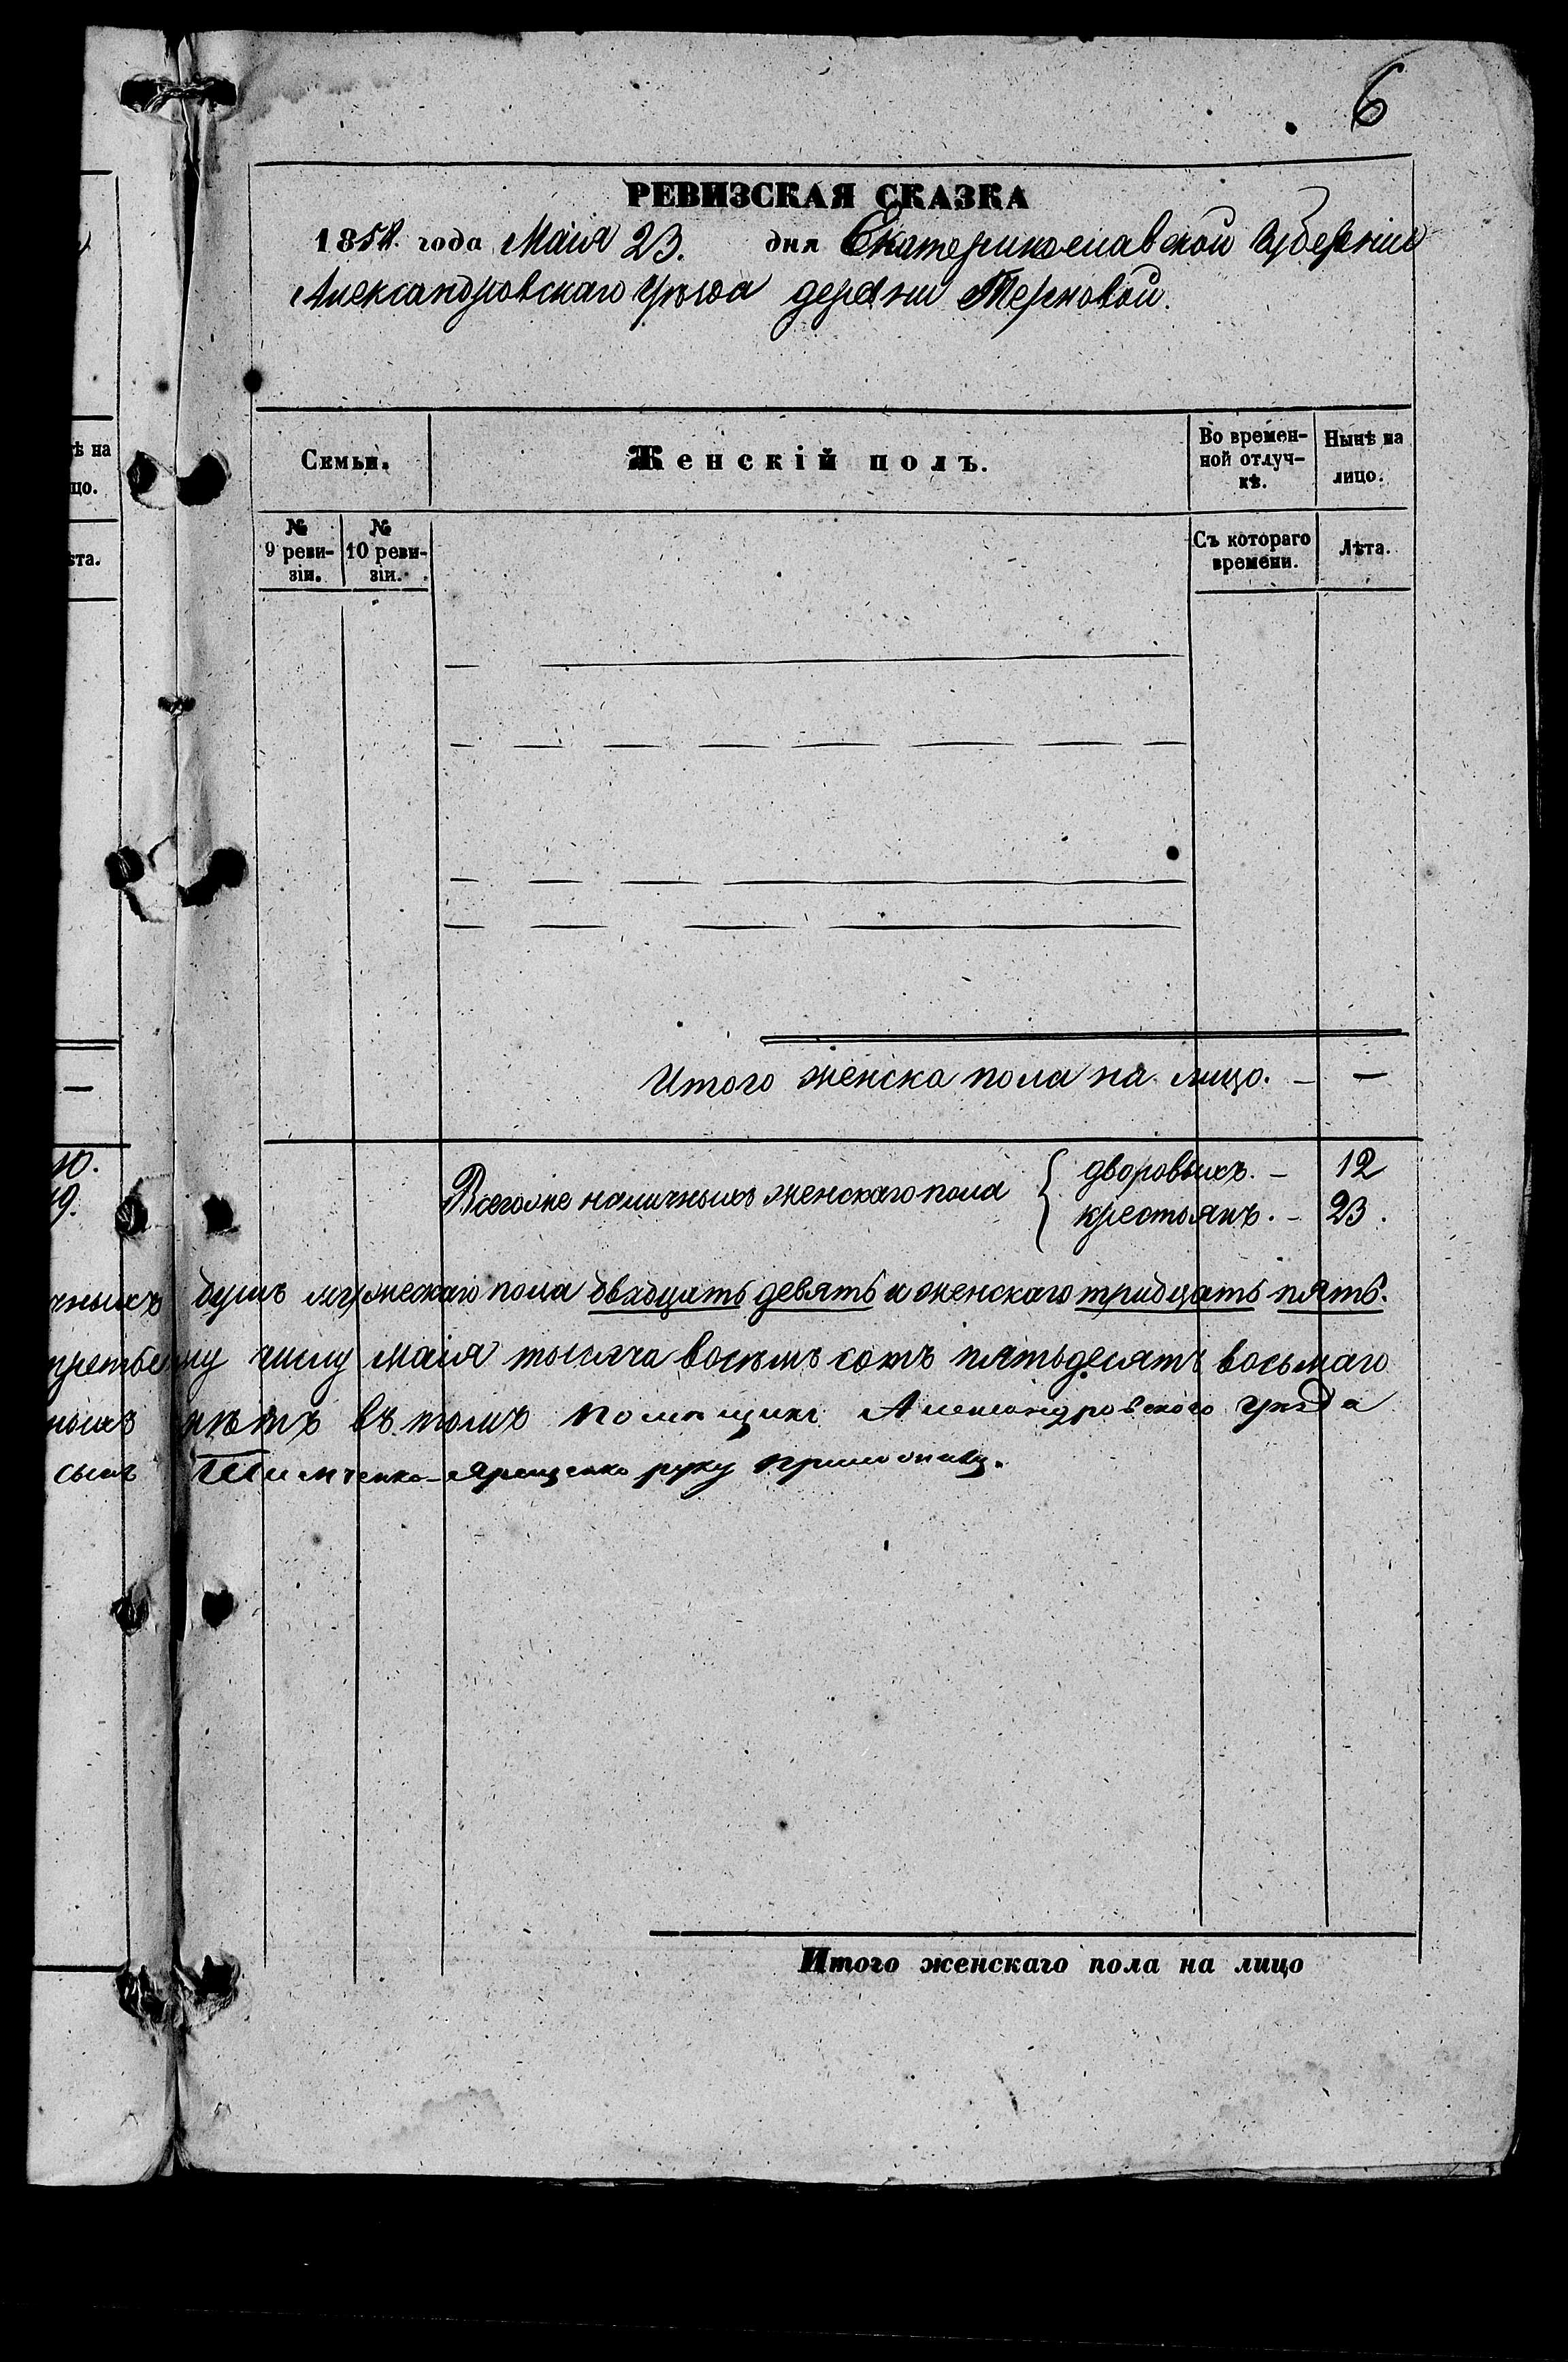 6
РЕВИЗСКАЯ СКАЗКА
1858. года Маія 23. дня Екатеринославской Губерніи
Александровскаго Уѣзда деревни Терновой.
ѣ на
цо.
Семьи.
Женскій полъ.
Во времен-
ной отлуч-
кѣ.
Нынѣ на
лицо.
ѣта.
№
9 реви-
зіи.
№
10 реви-
зіи.
Съ котораго
времени.
Лѣта.
Итого женска пола на лицо. — —
10.
19.
Всего не наличныхъ женскаго пола { дворовыхъ. — 12
крестьянъ. — 23.
чныхъ душъ мужескаго пола двадцать девять и женскаго тридцать пять.
третьему числу маія тысяча восемь сотъ пятьдесятъ восьмаго
нѣтъ въ томъ помѣщикъ Александровскаго уѣзда
сынъ Тимченко-Ярещенко руку приложилъ.
Итого женскаго пола на лицо